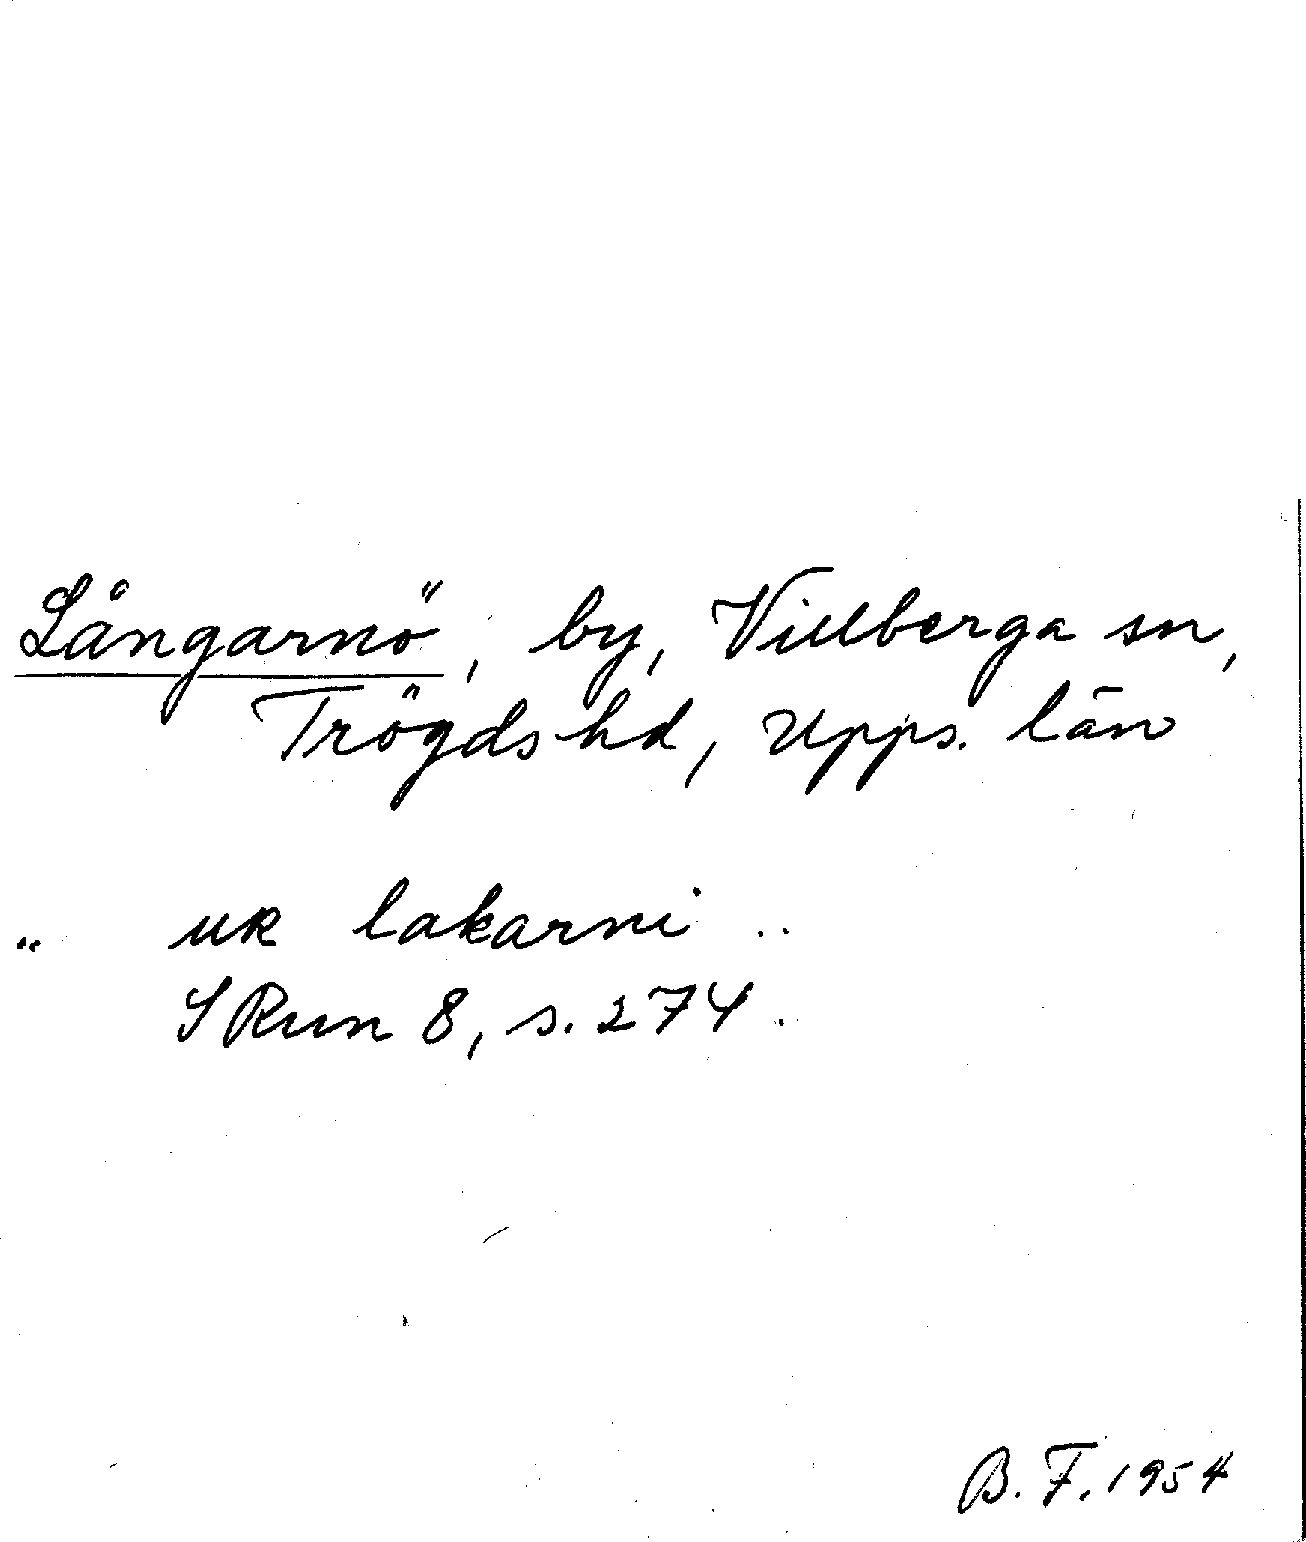 Långarnö, by, Villberga sn,
Trögds hd, Upps. län
" uk lakarni ..
SRun 8, s. 274.
B. F. 1954